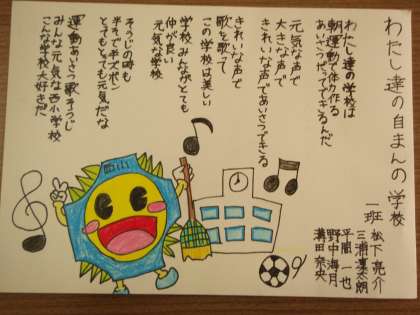 わたし達の自まんの学校
一班 松下亮介
三浦凜太朗
平間一也
野中海月
溝田奈央
わたし達の学校は
朝運動で体力作る
あいさつだってできるんだ
元気な声で
大きな声で
きれいな声であいさつできる
きれいな声で
歌を歌って
この学校は美しい
学校みんながとても
仲が良い
元気な学校
そうじの時も
半そで半ズボン
とてもとても元気だな
運動あいさつ歌そうじ
みんな元気な西小学校
こんな学校大好きだ